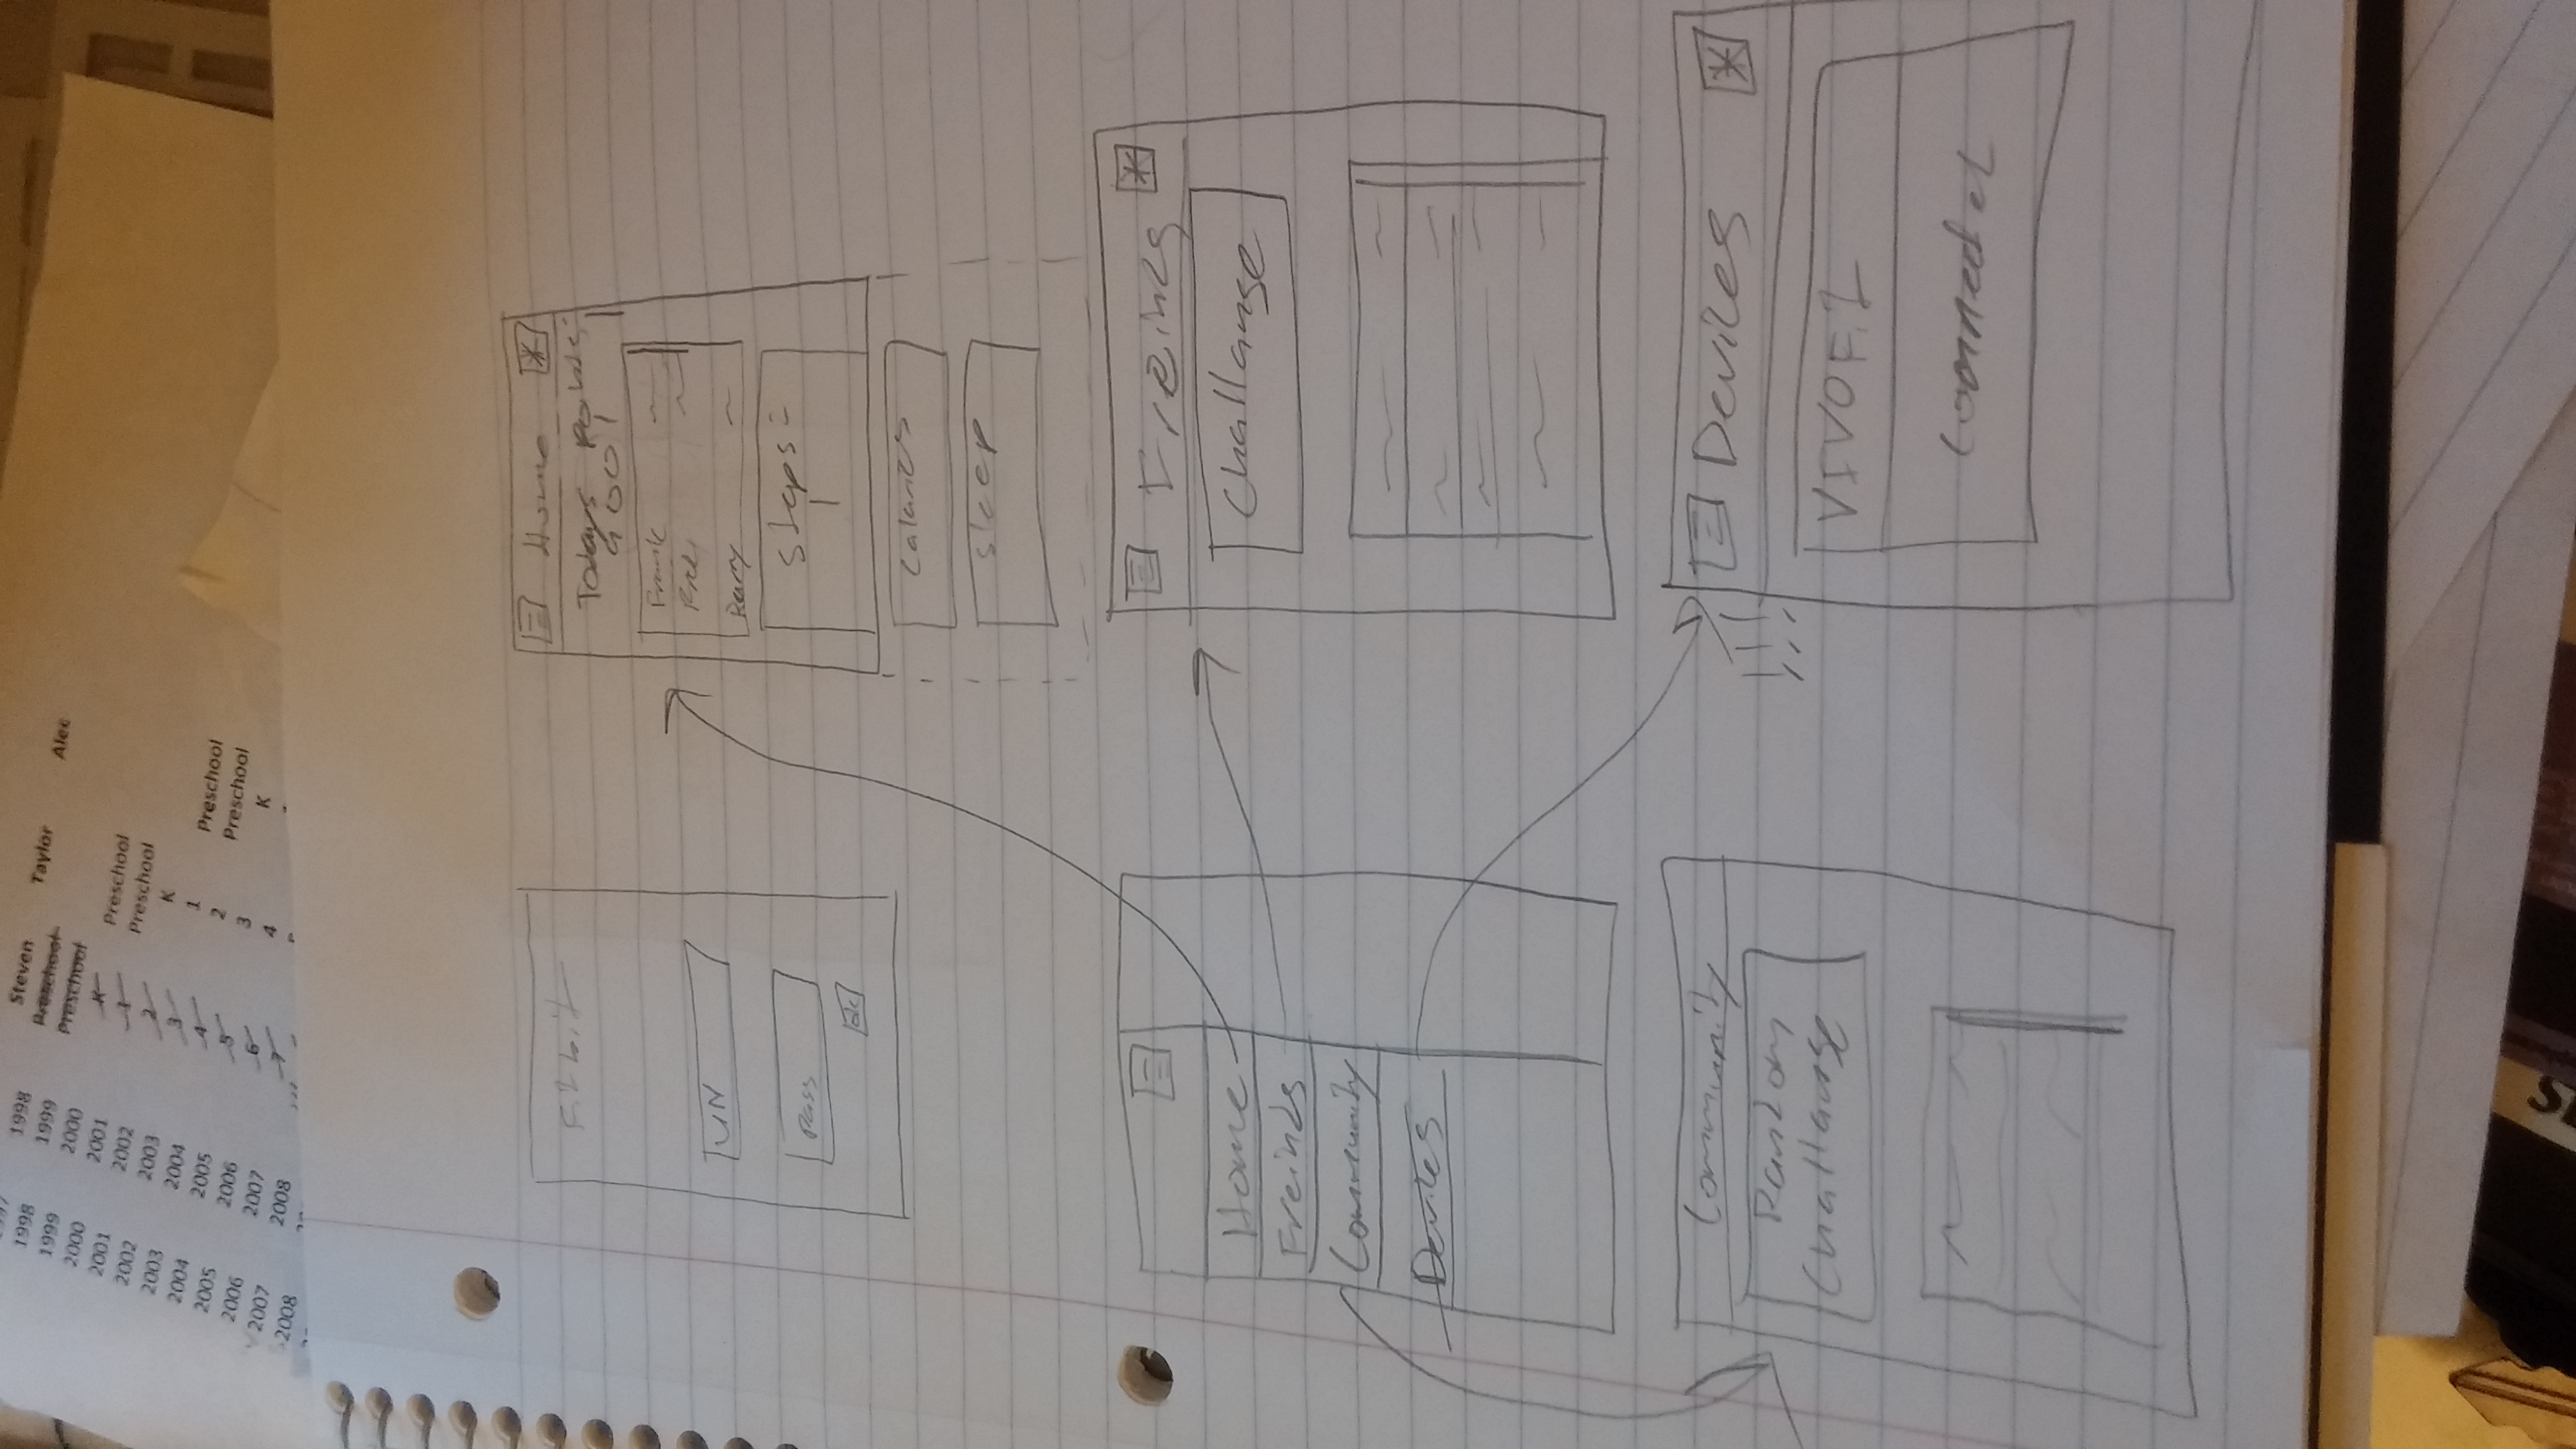 1998 1998 Steven Taylor Alec
1999 1999 Preschool
2000 2000 Preschool
2001 2001 K Preschool
2002 2002 1 Preschool
2003 2003 2 K
2004 2004 3 1 Preschool
2005 2005 4 2 Preschool
2006 2006 5 3 K
2007 2007 6 4
2008 2008 7
Fitbit
UN
Pass
ok
Home
Todays Points:
9001
Frank
Barry
Steps:
1
Calories
Sleep
Home
Freinds
Community
Devices
Freinds
Challange
Community
Random
Challange
!!!
Devices
VIVOFit
Connected